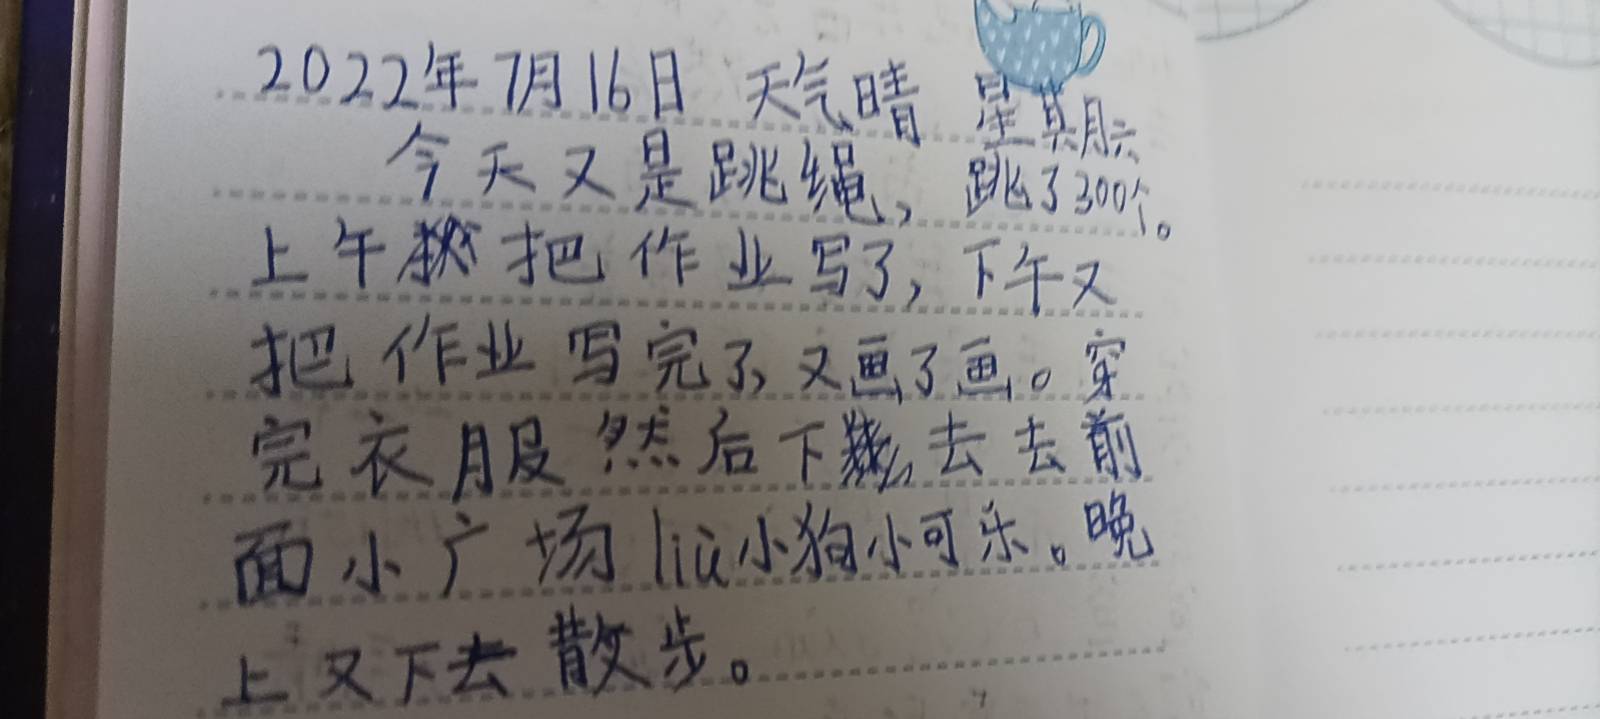 2022年7月16日 天气晴 星期六
今天又是跳绳，跳了300个。
上午把作业写了，下午又
把作业写完了，又画了画。穿
完衣服然后下去去前
面小广场liù小狗小可乐。晚
上又下去散步。